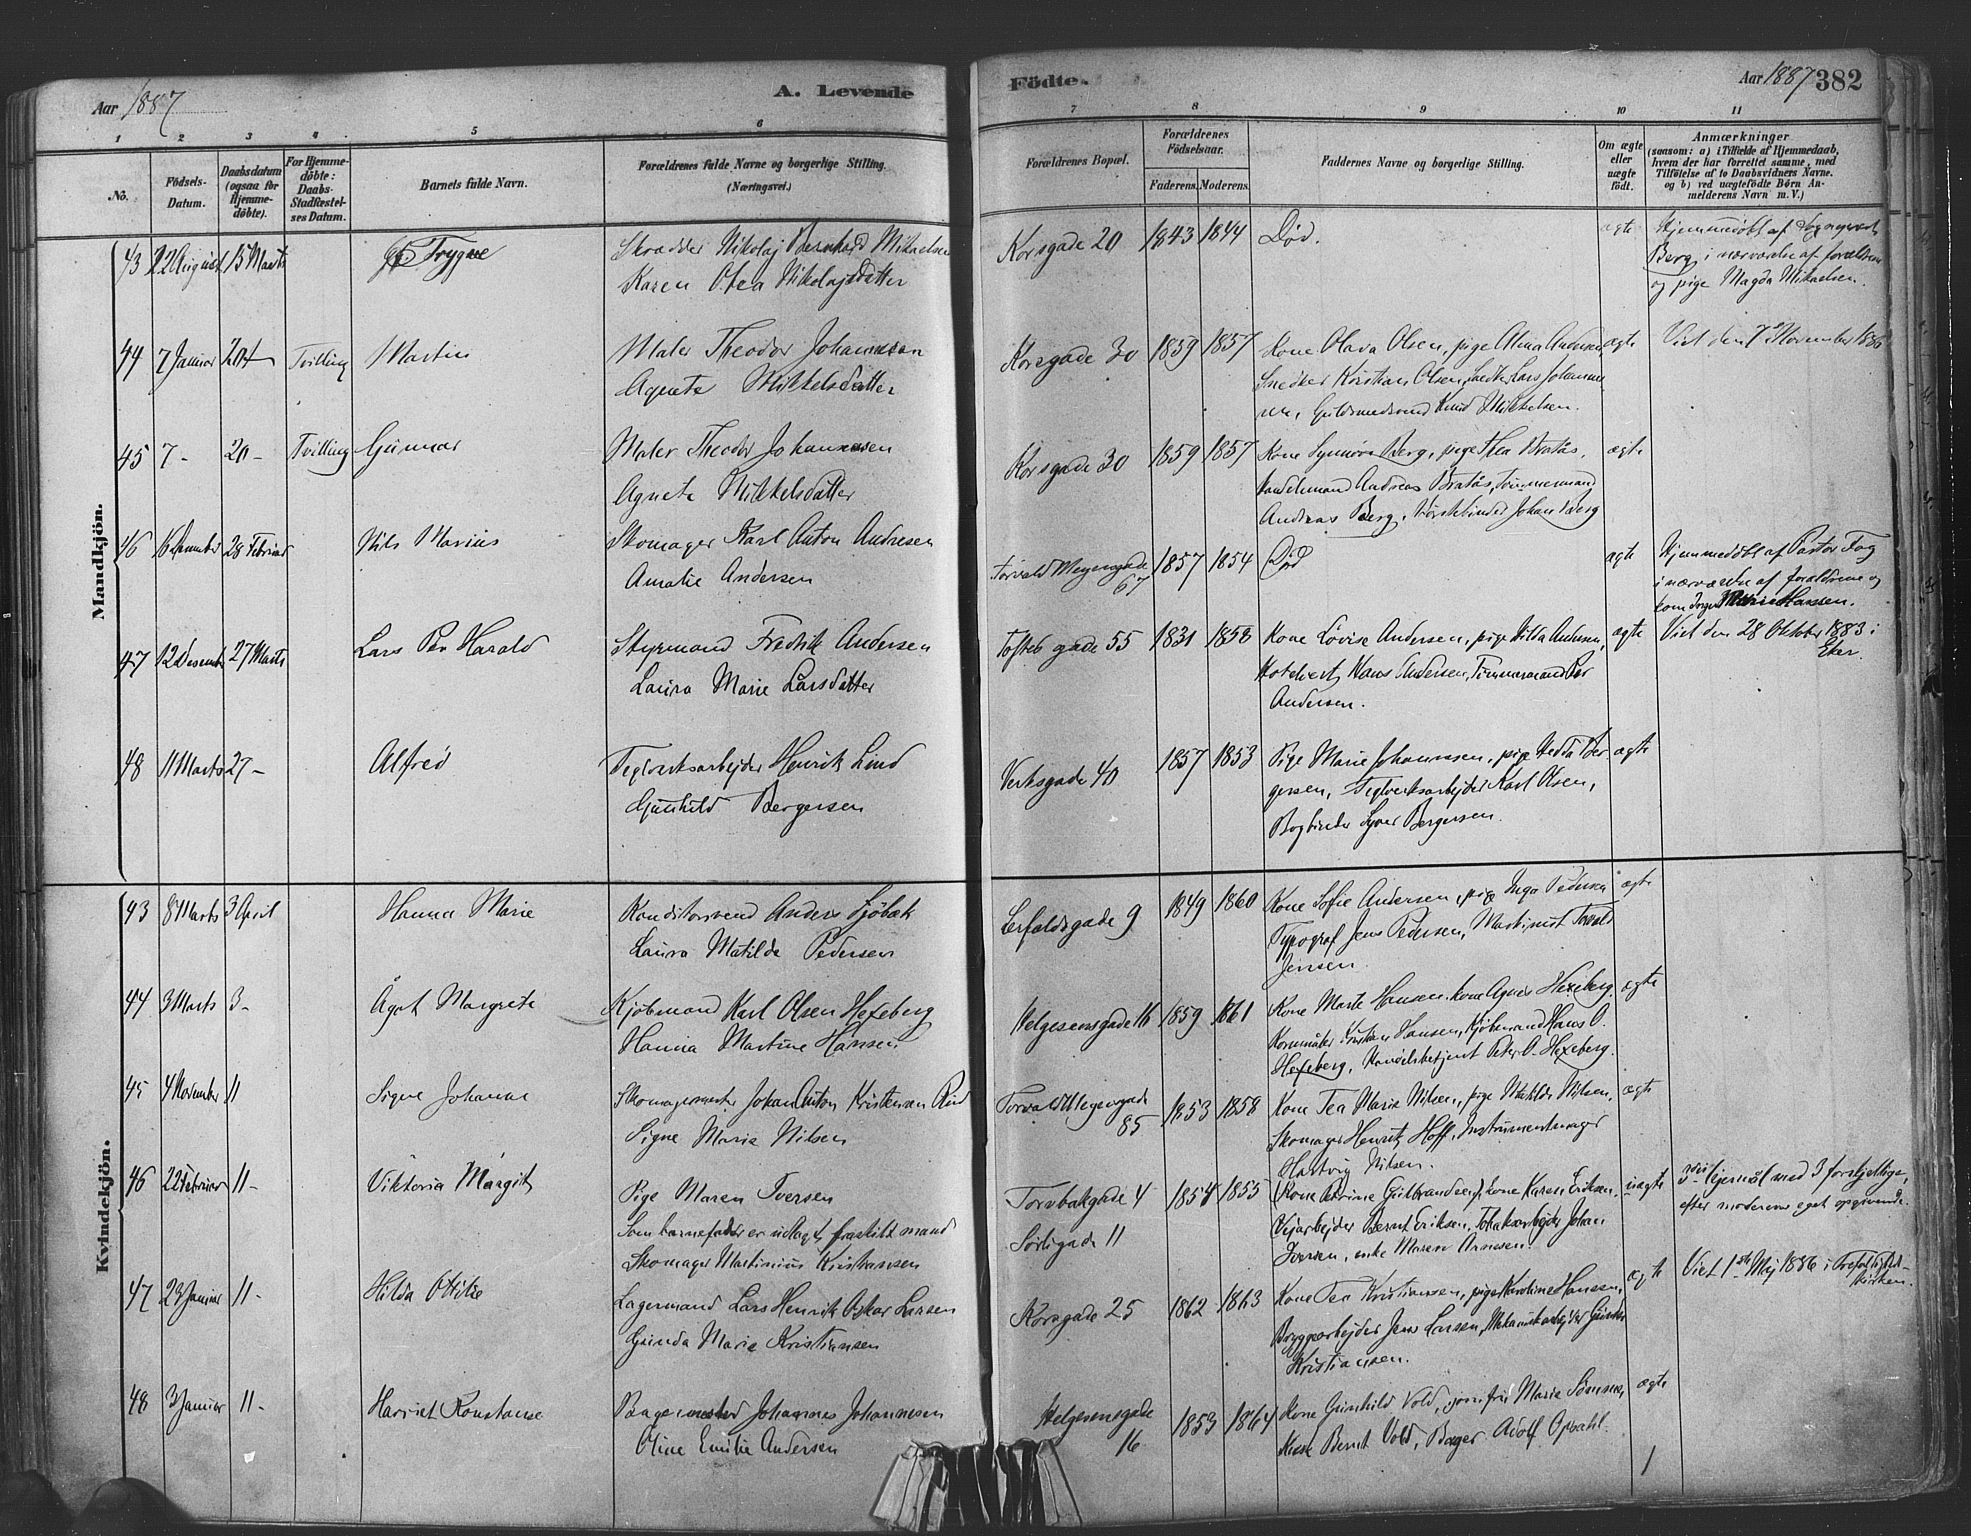 Aar 1887
A. Levende
Födte.
Aar 1887
382
1 2 3 4 5 6 7 8 9 10 11
No.
Födsels-
Datum.
Daabsdatum
(ogsaa for
Hjemme-
döbte).
For Hjemme-
döbte:
Daabs-
Stadfæstel-
ses Datum.
Barnets fulde Navn.
Forældrenes fulde Navne og borgerlige Stilling.
(Næringsvei.)
Forældrenes Bopæl.
Forældrenes
Födselsaar.
Faderens.
Moderens.
Faddernes Navne og borgerlige Stilling.
Om ægte
eller
uægte
födt.
Anmærkninger
(saasom: a) i Tilfælde af Hjemmedaab,
hvem der har forrettet samme, med
Tilföielse af to Daabsvidners Navne.
og b) ved uægtefödte Börn An-
melderens Navn m. V.)
Mandkjön.
43 22 August 15 Marts Trygve
Skrædder Nikolaj Bernhard Mikaelsen
Karen Olea Nikolajsdatter
Korsgade 20 1843 1844 Död. ægte
Hjemmedöbt af Sogneprest
Berg i nærværelse af forældrene
og pige Magda Mikaelsen.
44 7 Januar 20 Tvilling Martin
Maler Theodor Johannesen
Agnete Mikkelsdatter
Korsgade 30 1859 1857
Kone Olava Olsen, pige Alma Andersen,
Snedker Kristian Olsen, Snedker Lars Johanne
sen, Guldsmedsvend Knud Mikkelsen.
ægte
Viet den 7de November 1886
45 7 - 20 - Tvilling Gunnar
Maler Theodor Johannesen
Agnete Mikkelsdatter
Korsgade 30 1859 1857
Kone Synnöve Berg, pige Thea Bratås,
Handelsmand Andreas Bratås, Tömmermand
Andreas Berg, Börstebinder Johan Berg
ægte
46 16 December 28 Februar Nils Marius
Skomager Karl Anton Andresen
Amalie Andersen
Torvald Meyersgade
67
1857 1854 Död ægte
Hjemmedöbt af Pastor Fog
i nærværelse af forældrene og
Hansen.
47 12 Desember 27 Marts Lars Per Harald
Styrmand Fredrik Andersen
Laura Marie Larsdatter
Toftes gade 55 1831 1858
Kone Lovise Andersen, pige Hilda Andersen,
Hotelvert Hans Andersen, Tömmermand Per
Andersen.
ægte
Viet den 28 Oktober 1883 i
Eker.
48 11 Marts 27 - Alfred
Teglverksarbejder Henrik Lind
Gunhild Bergersen
Verksgade 40 1857 1853
Pige Marie Johannesen, pige Hedda Ber
gersen, Teglverksarbejder Karl Olsen,
Bogbinder Syver Bergersen.
ægte
Kvindekjön.
43 8 Marts 3 April Hanna Marie
Konditorsvend Anders Sjöbæk
Laura Matilde Pedersen
9 1849 1860
Kone Sofie Andersen, pige Inga Pedersen
Typograf Jens Pedersen, Maskinist Torvald
Jensen.
ægte
44 3 Marts 3 - Ågot Margrete
Kjöbmand Karl Olsen Hexeberg
Hanna Martine Hansen
Helgesensgade 16 1859 1861
Kone Marte Hansen, kone Agnes Hexeberg,
Kornmåler Kristian Hansen, Kjöbmand Hans O.
Hexeberg, Handelsbetjent Peter O. Hexeberg.
ægte
45 4 November 11 Signe Johanne
Skomagermester Johan Anton Kristensen Rud
Signe Marie Nilsen
Torvald Meyersgade
85
1853 1858
Kone Tea Marie Nilsen, pige Matilde Nilsen,
Skomager Henrik Hoff, Instrumentmager
Hartvig Nilsen.
ægte
46 22 Februar 11 - Viktoria Margit
Pige Maren Iversen
Som barnefader er udlagt fraskilt mand
Skomager Martinius Kristiansen
Torvbakgade 4
Sörligade 11
1854 1855
(Kone Petrine Gulbrandsen), kone Karen Eriksen,
Vejarbejder Bernt Eriksen, Tobaksarbejder Johan
Iversen, enke Maren Arnesen.
uægte
3die lejermål med 3 forskjellige,
efter moderens eget opgivende.
47 23 Januar 11 - Hilda Otilie
Lagermand Lars Henrik Oskar Larsen
Gunda Marie Kristiansen
Korsgade 25 1862 1863
Kone Tea Kristiansen, pige Karoline Hansen,
Bryggearbejder Jens Larsen, Mekanikarbejder Gunder
Kristiansen.
ægte
Viet 1ste Mej 1886 i Trefoldigheds-
kirken.
48 3 Januar 11 - Harriet Konstanse
Bagermester Johannes Johannesen
Oline Emilie Andersen
Helgesensgade
16
1853 1864
Kone Gunhild Vold, jomfru Marie
Bernt Vold, Bager Adolf Opdahl.
ægte